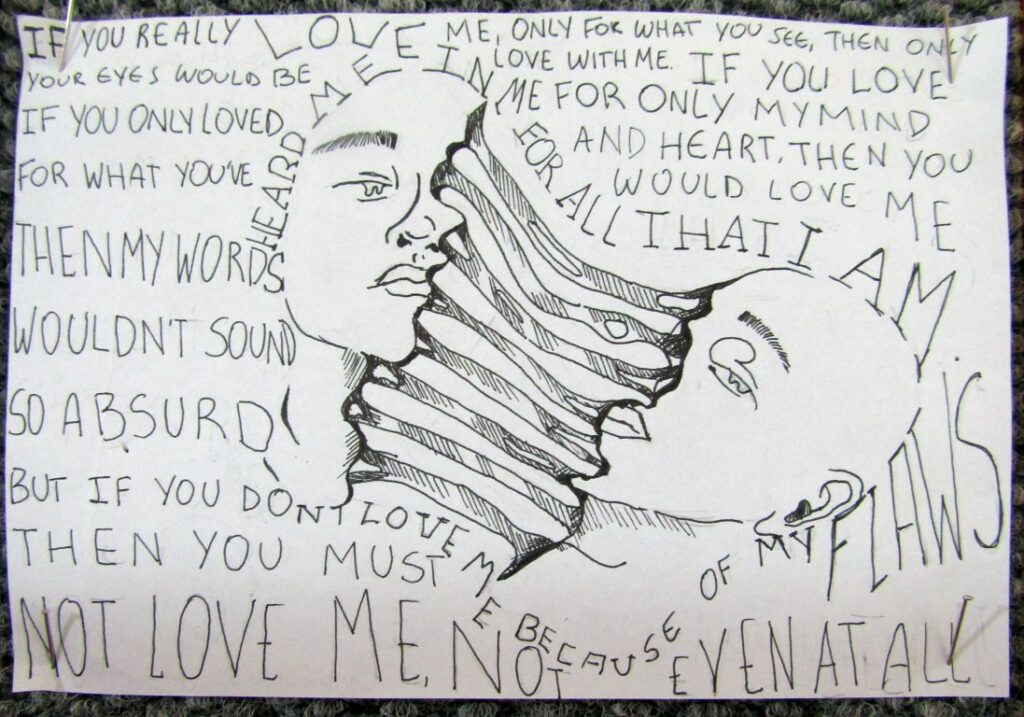 IF YOU REALLY LOVE ME, ONLY FOR WHAT YOU SEE, THEN ONLY
YOUR EYES WOULD BE IN LOVE WITH ME. IF YOU LOVE
ME FOR ONLY MY MIND
AND HEART, THEN YOU
WOULD LOVE ME
FOR ALL THAT I AM.
IF YOU ONLY LOVED ME
FOR WHAT YOU'VE HEARD
THEN MY WORDS
WOULDN'T SOUND
SO ABSURD
BUT IF YOU DON'T LOVE ME BECAUSE OF MY FLAWS
THEN YOU MUST
NOT LOVE ME, NOT EVEN AT ALL